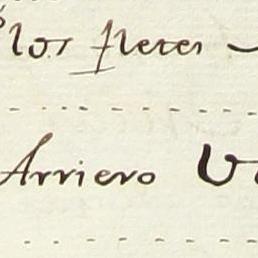 los fletes
Arriero